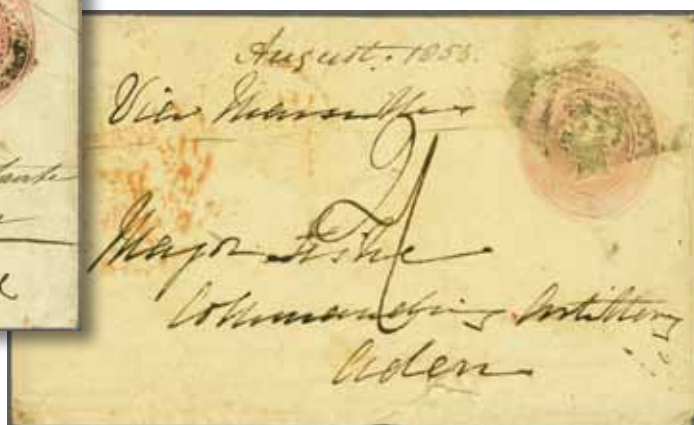 August. 1853.
Via Marseilles
2/
Major
Commanding Artillery
Aden